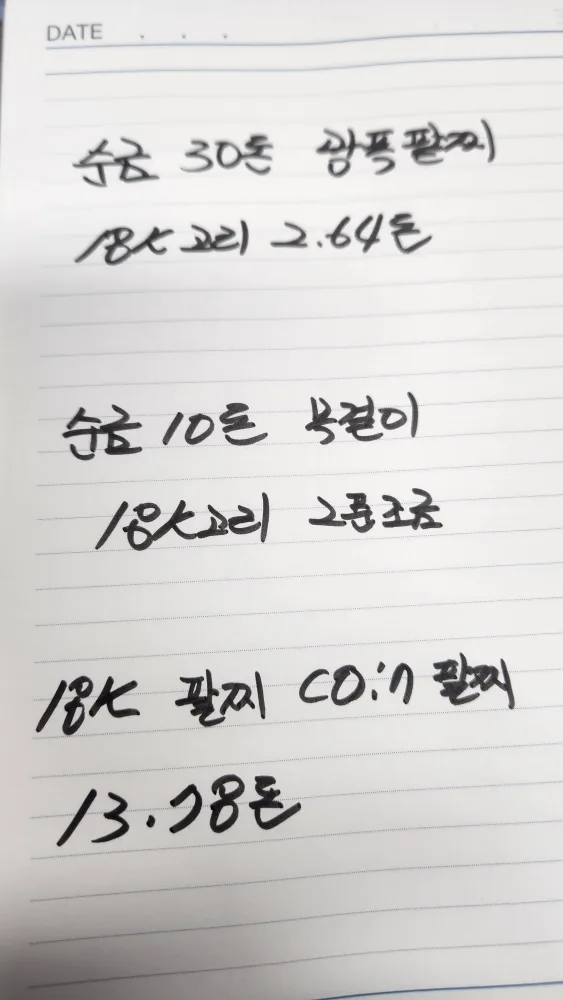 DATE . . .
순금 30돈 광폭팔찌
18K고리 2.64돈
순금 10돈 목걸이
18K고리 2푼조금
18K 팔찌 COin 팔찌
13.78돈